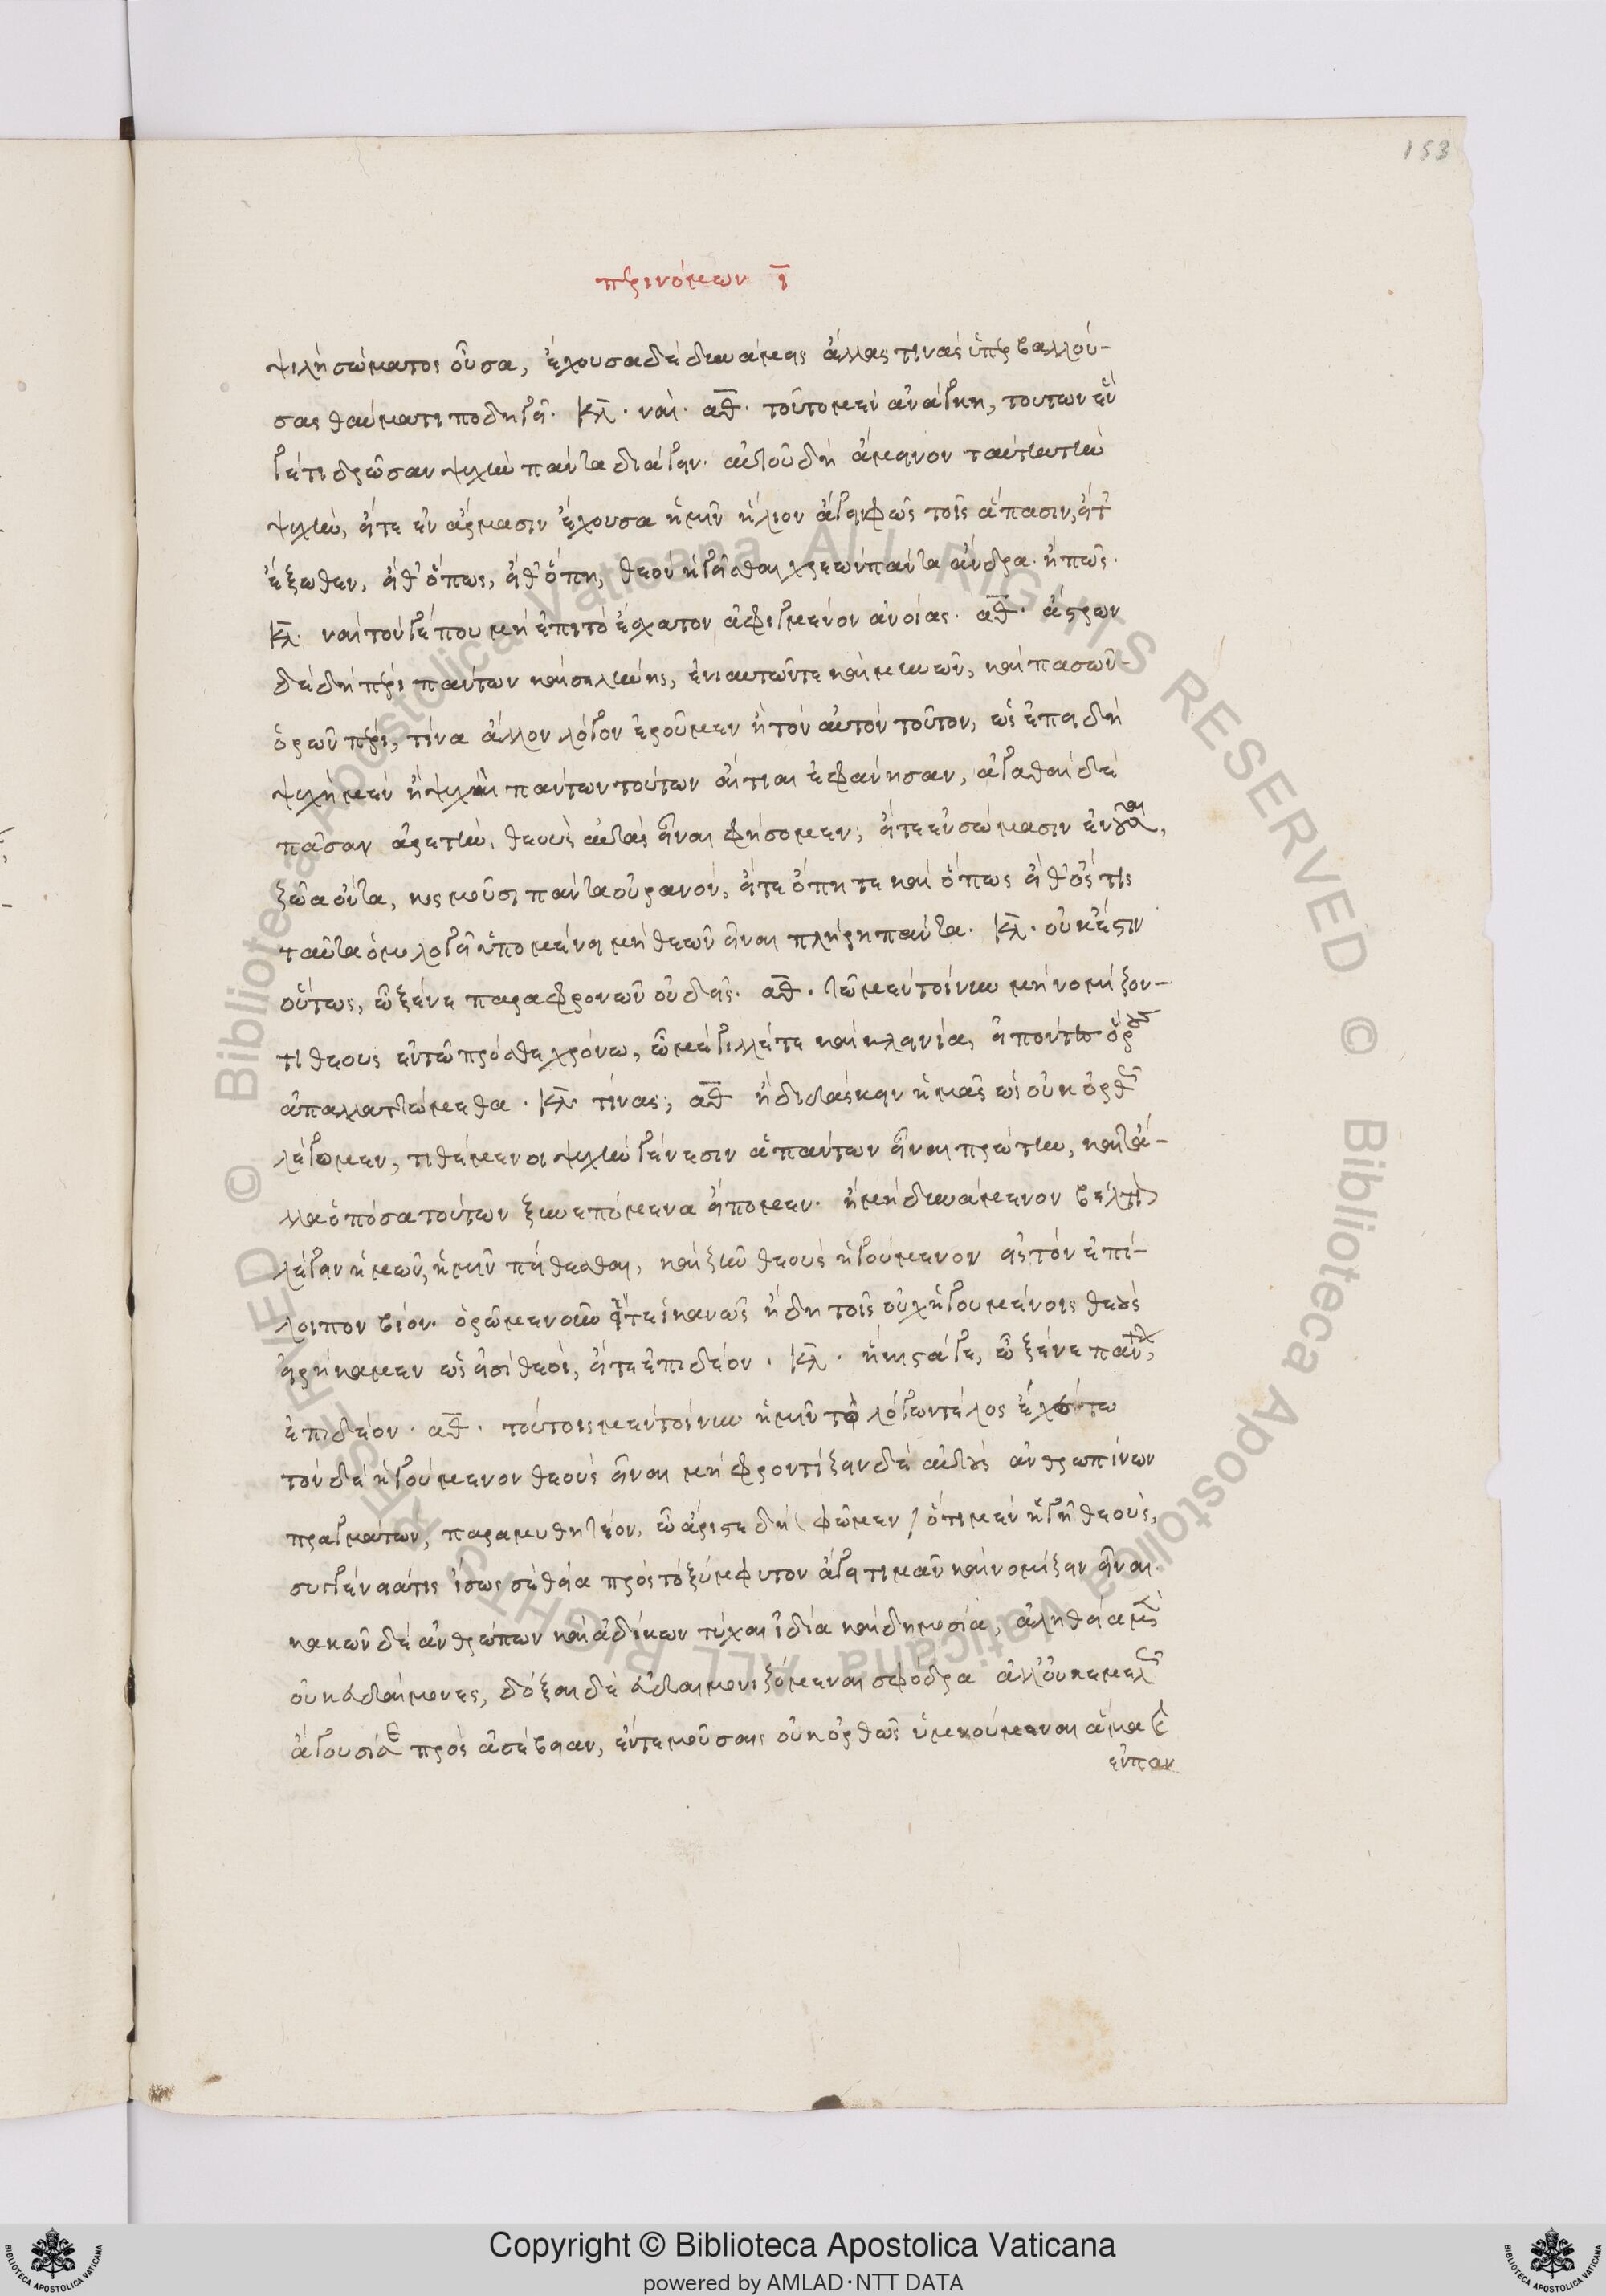 153
περὶ νόμων ῑ
ψιλὴ σώματος οὖσα, ἔχουσα δὲ δυνάμεις ἄλλας τινὰς ὑπερβαλλού-
σας θαύματι ποδηγεῖ. κλ. ναί. αθ. τοῦτο μὲν ἀνάγκη, τούτων ἕν
γέ τι δρῶσαν ψυχὴν πάντα διάγειν. αὐτοῦ δὴ ἄμεινον ταύτην τὴν
ψυχὴν, εἴτε ἐν ἅρμασιν ἔχουσα ἡμῖν ἥλιον ἄγει φῶς τοῖς ἅπασιν, εἴτ
ἔξωθεν, εἴθ' ὅπως, εἴθ' ὅπη, θεὸν ἡγεῖσθαι χρεὼν πάντα ἄνδρα. ἢ πῶς.
κλ. ναὶ τόν γέ που μὴ ἐπὶ τὸ ἔσχατον ἀφιγμένον ἀνοίας. αθ. ἄστρων
δὲ δὴ πέρι πάντων καὶ σελήνης, ἐνιαυτῶν τε καὶ μηνῶν, καὶ πασῶν
ὁρῶν πέρι, τίνα ἄλλον λόγον ἐροῦμεν ἢ τὸν αὐτὸν τοῦτον, ὡς ἐπειδὴ
ψυχὴ μὲν ἢ ψυχαὶ πάντων τούτων αἴτιαι ἐφάνησαν, ἀγαθαὶ δὲ
πᾶσαν ἀρετὴν, θεοὺς αὐτὰς εἶναι φήσομεν; εἴτε ἐν σώμασιν ἐνοῦσαι,
ζῶα ὄντα, κοσμοῦσι πάντα οὐρανόν, εἴτε ὅπη τε καὶ ὅπως εἴθ' ὅς τις
ταῦτα ὁμολογεῖ ὑπομένει μὴ θεῶν εἶναι πλήρη πάντα. κλ. οὐκ ἔστιν
οὕτως, ὦ ξένε παραφρονῶν οὐδείς. αθ. τῶ μὲν τοίνυν μὴ νομίζον-
τι θεοὺς ἐν τῶ πρόσθε χρόνω, ὦ μέγιλλέ τε καὶ κλεινία, εἰπόντες ὅρους
ἀπαλλαττώμεθα. κλ. τίνας; αθ ἢ διδάσκειν ἡμᾶς ὡς οὐκ ὀρθῶς
λέγομεν, τιθέμενοι ψυχὴν γένεσιν ἁπάντων εἶναι πρώτην, καὶ τἆ-
λλα ὁπόσα τούτων ξυνεπόμενα εἴπομεν. ἢ μὴ δυνάμενον βέλτιον
λέγειν ἡμῶν, ἡμῖν πείθεσθαι, καὶ ζῆν θεοὺς ἡγούμενον εἰς τὸν ἐπί-
λοιπον βίον. ὁρῶμεν οὖν εἴτε ἱκανῶς ἤδη τοῖς οὐχ ἡγουμένοις θεοὺς
εἰρήκαμεν ὡς εἰσὶ θεοί, εἴτε ἐπιδεῶν. κλ. ἥκιστά γε, ὦ ξένε πάντων,
ἐπιδεῶν. αθ. τούτοις μὲν τοίνυν ἡμῖν τὸ λόγων τέλος ἐχέτω
τὸν δὲ ἡγούμενον θεοὺς εἶναι μὴ φροντίζειν δὲ αὐτοὺς ἀνθρωπίνων
πραγμάτων, παραμυθητέον, ὦ ἄριστε δὴ φῶμεν, ὅτι μὲν ἡγῆ θεούς,
συγγένειά τις ἴσως σε θεία πρὸς τὸ ξύμφυτον ἄγει τιμᾶν καὶ νομίζειν εἶναι.
κακῶν δὲ ἀνθρώπων καὶ ἀδίκων τύχαι ἰδία καὶ δημοσία, ἀληθεία μὲν
οὐκ εὐδαίμονες, δόξαι δὲ εὐδαιμονιζόμεναι σφόδρα ἀλλ' οὐκ ἐμμελῶς
ἄγουσί σε πρὸς ἀσέβειαν, ἔν τε μούσαις οὐκ ὀρθῶς ὑμνούμεναι ἅμα καὶ
ἐν παν
Copyright © Biblioteca Apostolica Vaticana
powered by AMLAD·NTT DATA